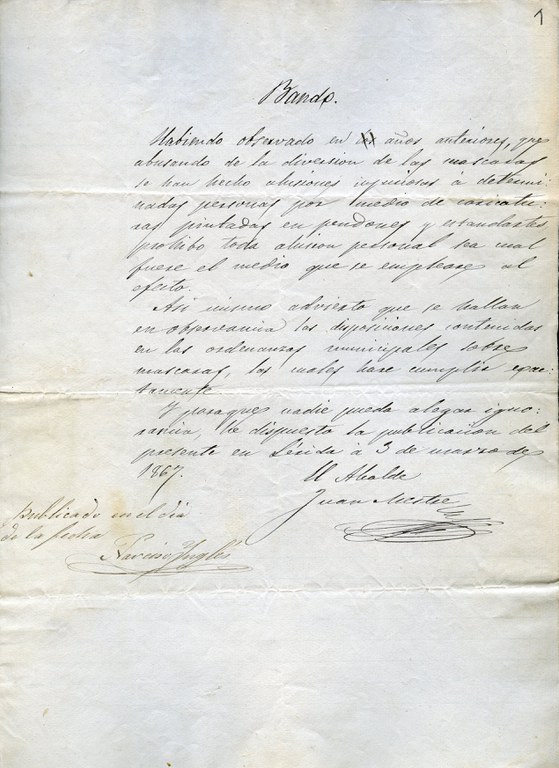 1
Bando.
Habiendo observado en años anteriores, que
abusando de la diversion de las mascaras
se han hecho alusiones injuriosas á determi
nadas personas por medio de caricatu
ras pintadas en pendones y estandartes
prohibo toda alusion personal sea cual
fuese el medio que se emplease al
efecto.
Asi mismo advierto que se hallan
en observancia las disposiciones contenidas
en las ordenanzas municipales sobre
mascaras, las cuales hare cumplir exac
tamente.
Y paraque nadie pueda alegar igno
rancia, he dispuesto la publicacion del
presente en Lérida á 3 de marzo de
1867.
El Alcalde
Juan Mestre
Publicado en el dia
de la fecha
Narciso Inglés